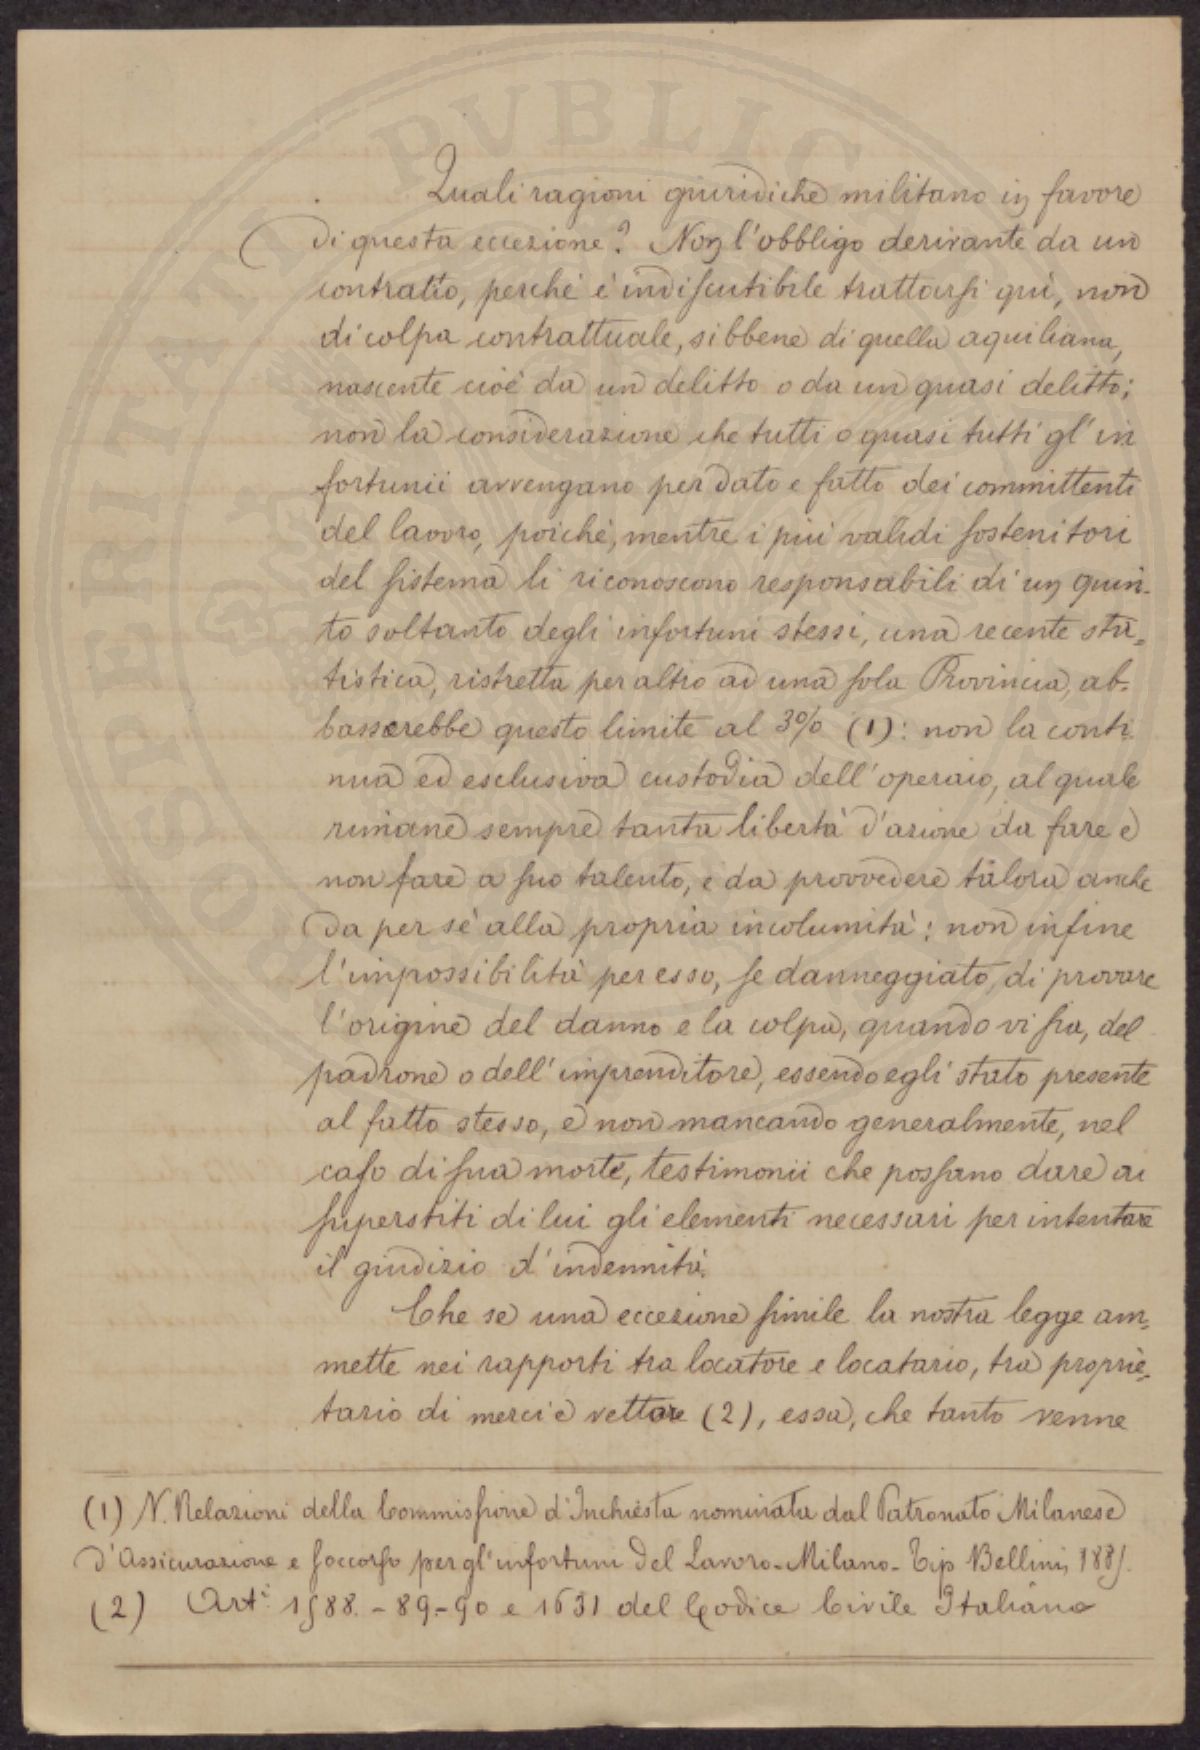 PUBLICAE
PROSPERITATI
Quali ragioni giuridiche militano in favore
di questa eccezione? Non l'obbligo derivante da un
contratto, perchè è indiscutibile trattarsi quì, non
di colpa contrattuale, sibbene di quella aquiliana,
nascente cioè da un delitto o da un quasi delitto;
non la considerazione che tutti o quasi tutti gl'in
fortunii avvengano per dato e fatto dei committenti
del lavoro, poichè, mentre i più validi sostenitori
del sistema li riconoscono responsabili di un quin-
to soltanto degli infortuni stessi, una recente sta=
tistica, ristretta per altro ad una sola Provincia, ab-
basserebbe questo limite al 3% (1): non la conti
nua ed esclusiva custodia dell'operaio, al quale
rimane sempre tanta libertà d'azione da fare e
non fare a suo talento, e da provvedere talora anche
da per sè alla propria incolumità; non infine
l'impossibilità per esso, se danneggiato, di provare
l'origine del danno e la colpa, quando vi sia, del
padrone o dell'imprenditore, essendo egli stato presente
al fatto stesso, e non mancando generalmente, nel
caso di sua morte, testimonii che possano dare ai
superstiti di lui gli elementi necessari per intentare
il giudizio d'indennità.
Che se una eccezione simile la nostra legge am=
mette nei rapporti tra locatore e locatario, tra proprie=
tario di merci e vettore (2), essa, che tanto venne
(1) V. Relazioni della Commissione d'Inchiesta nominata dal Patronato Milanese
d'Assicurazione e soccorso per gl'infortuni del Lavoro - Milano - Tip Bellini,
(2) Art.i 1588. - 89 - 90 e 1631 del Codice Civile Italiano